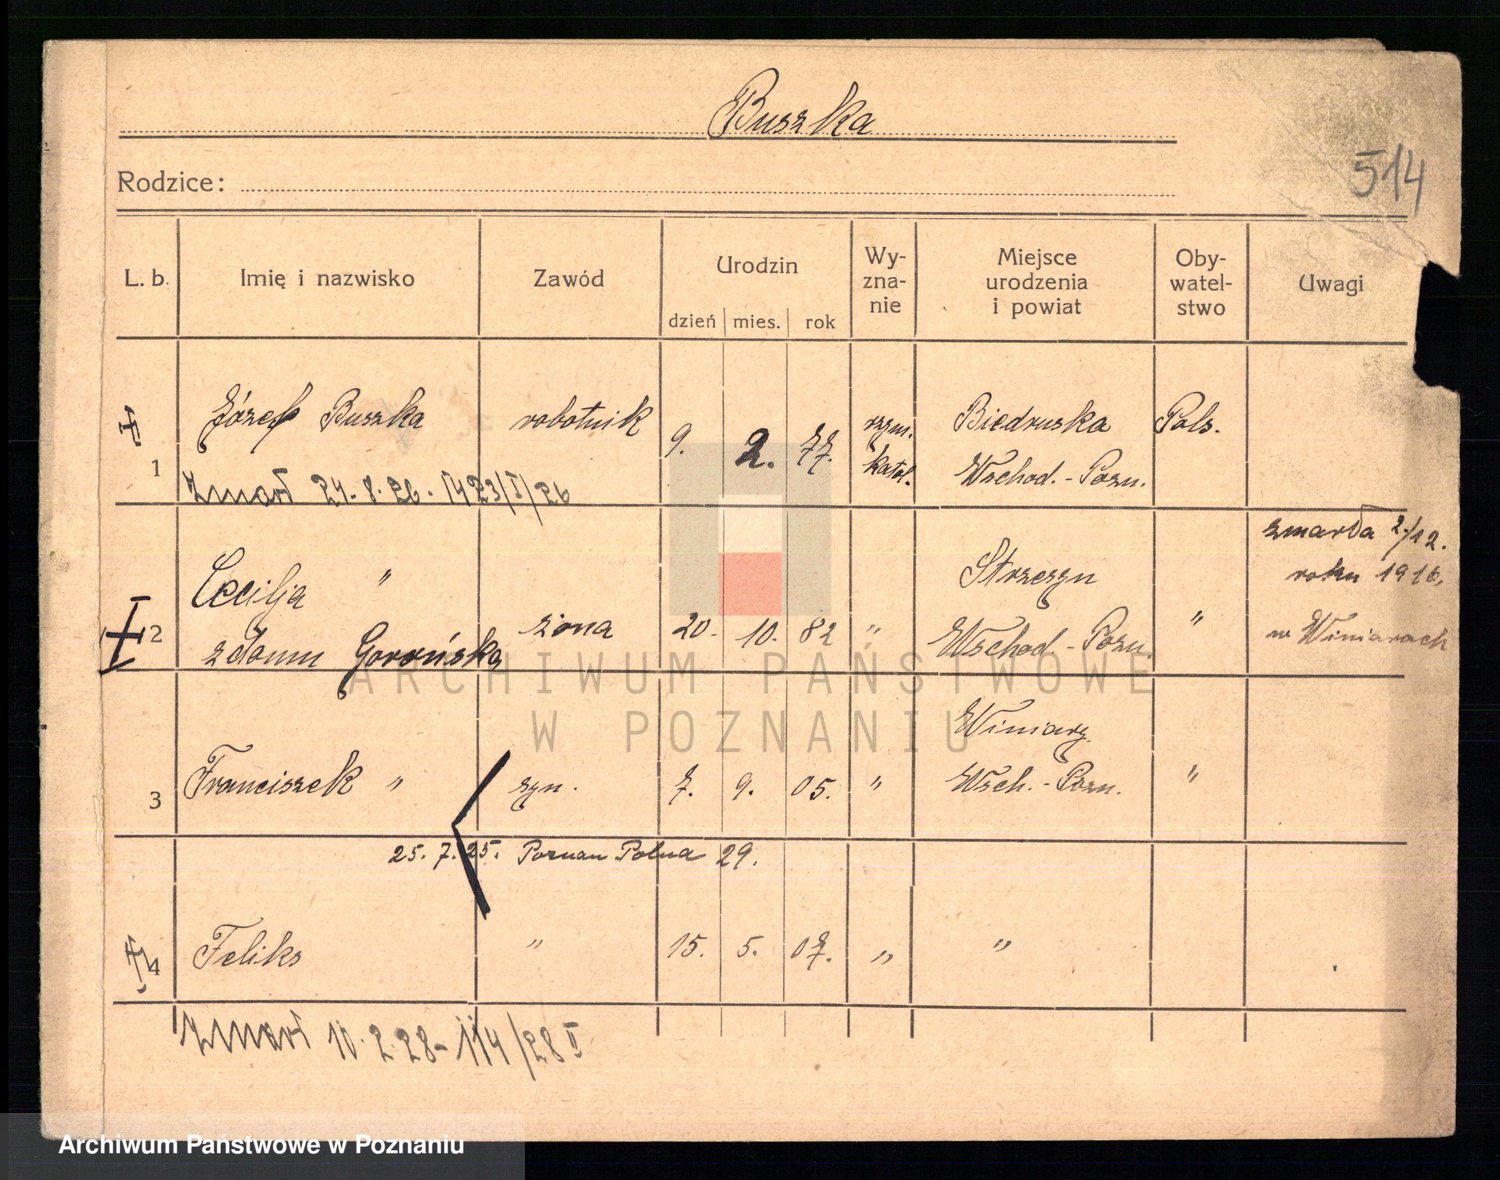 Buszka
514
Rodzice:
L. b. Imię i nazwisko Zawód Urodzin Wy-zna-nie Miejsce urodzenia i powiat Oby-watel-stwo Uwagi
dzień mies. rok
1 Józef Buszka robotnik 9. 2. 77. rzym. katol. Biedruska Wschod.-Pozn. Pols.
Zmarł 24.8.26. 1423/I/26
2 Cecilja " żona 20. 10. 82 " Strzeszyn Wschod.-Pozn. " zmarła 2./12. roku 1916, w Winiarach
z domu Gorońska
3 Franciszek " syn. 7. 9. 05. " Winiary Wsch.-Pozn. "
25.7.25. Poznan Polna 29.
4 Feliks " 15. 5. 07. " "
Zmarł 10.2.28-114/28 II
ARCHIWUM PAŃSTWOWE
W POZNANIU
Archiwum Państwowe w Poznaniu